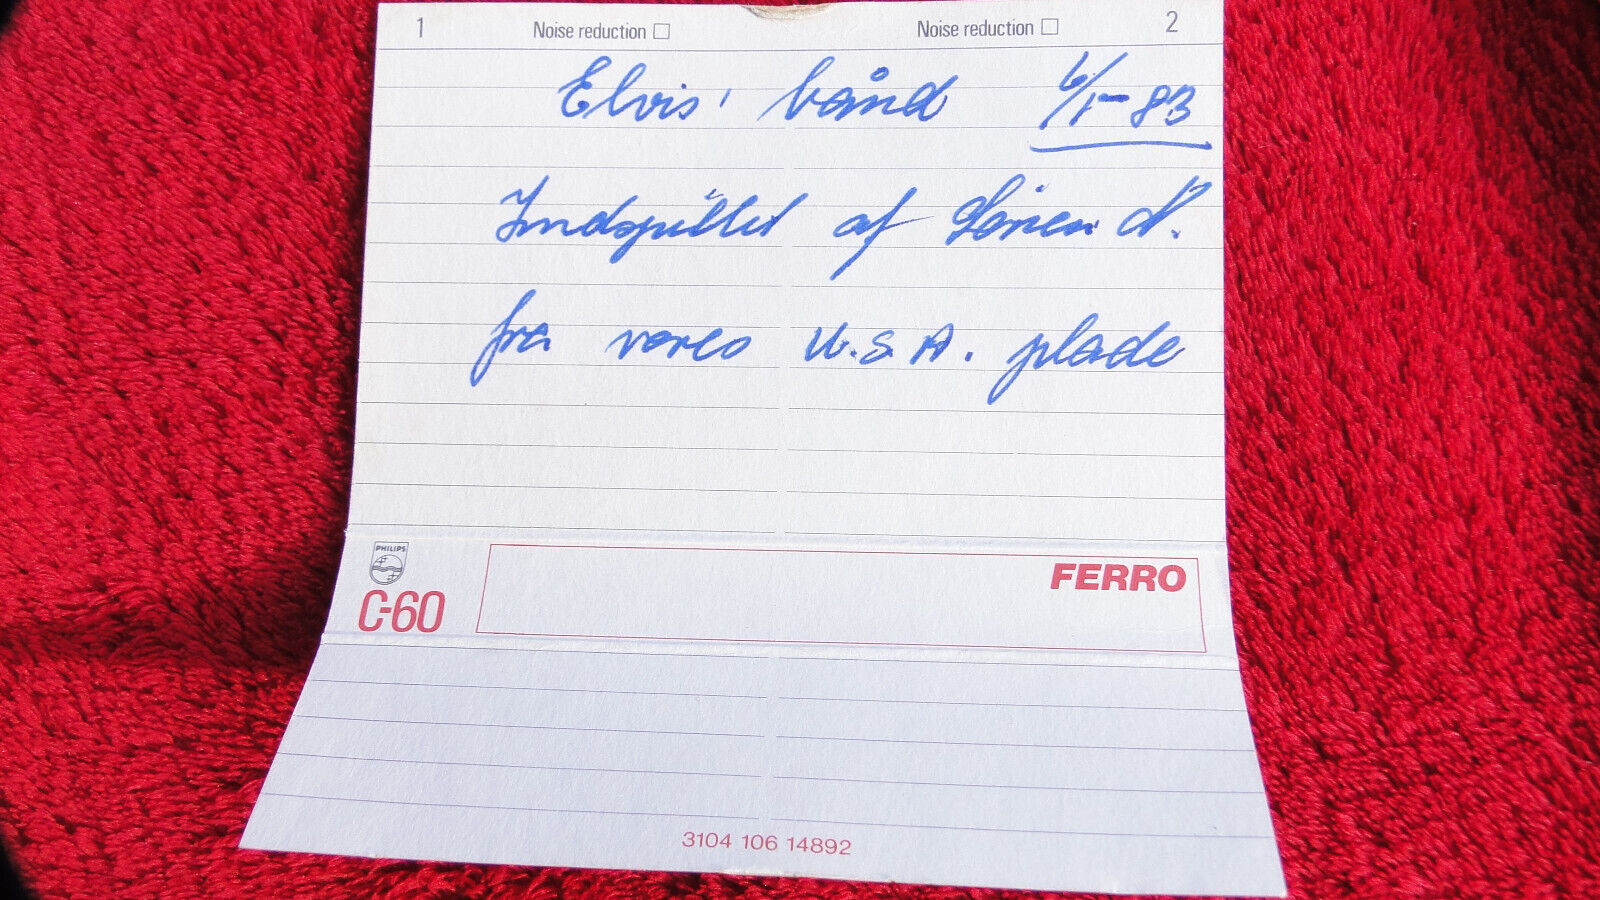 1 Noise reduction Noise reduction 2
Elvis' bånd 6/1-83
Indspillet af Søren N.
fra vores U.S.A. plade
PHILIPS
C-60
FERRO
3104 106 14892